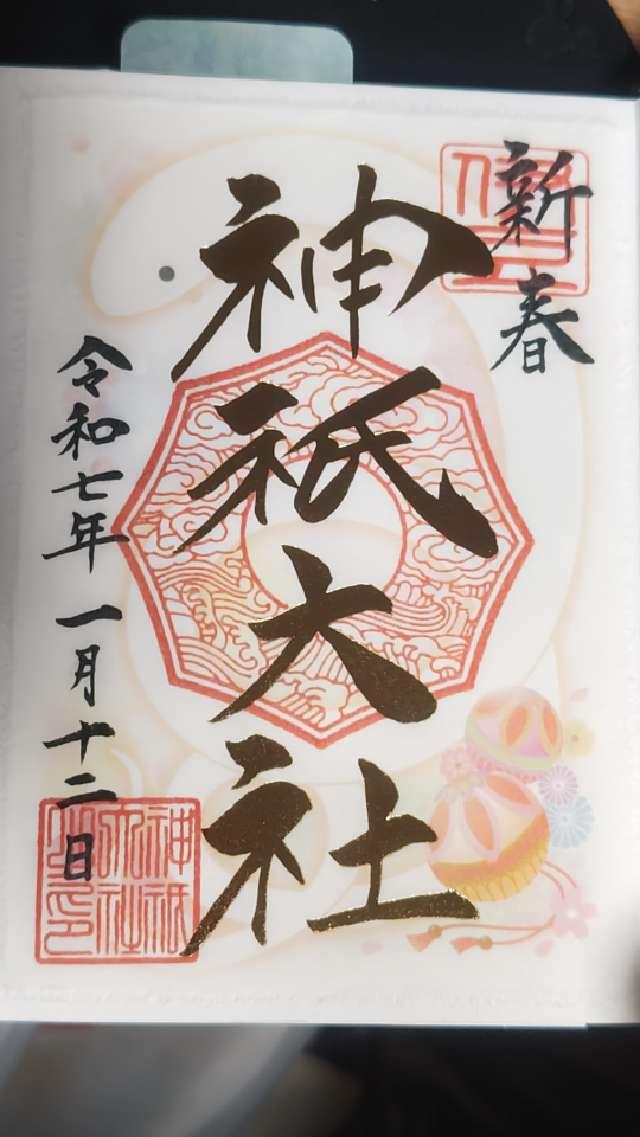 新春
神祇大社
令和七年一月十二日
神祇
大社